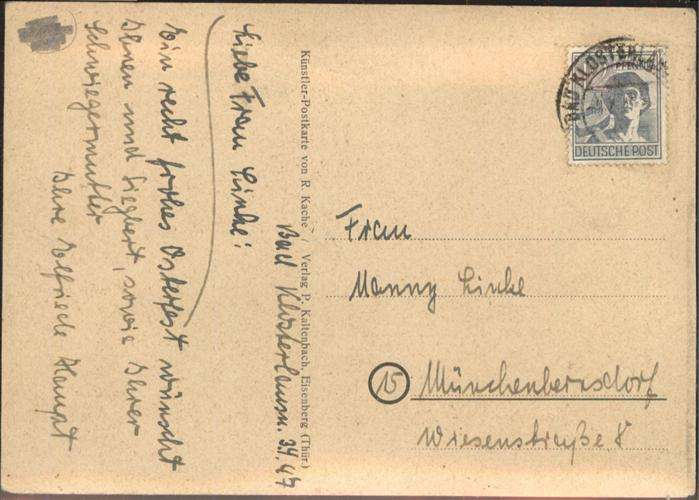 Künstler-Postkarte von R. Kache / Verlag P. Kaltenbach, Eisenberg (Thür.)
Bad Klosterlausn.
Liebe Frau Linke!
Ein recht frohes Osterfest wünscht
Ihnen und Siegbert, sowie Ihrer
Schwiegermutter
Ihre Elfriede Haupt
BAD KLOSTERLAU
PFENNIG
DEUTSCHE POST
Frau
Manny Linke
15 Münchenbernsdorf
Wiesenstraße 8